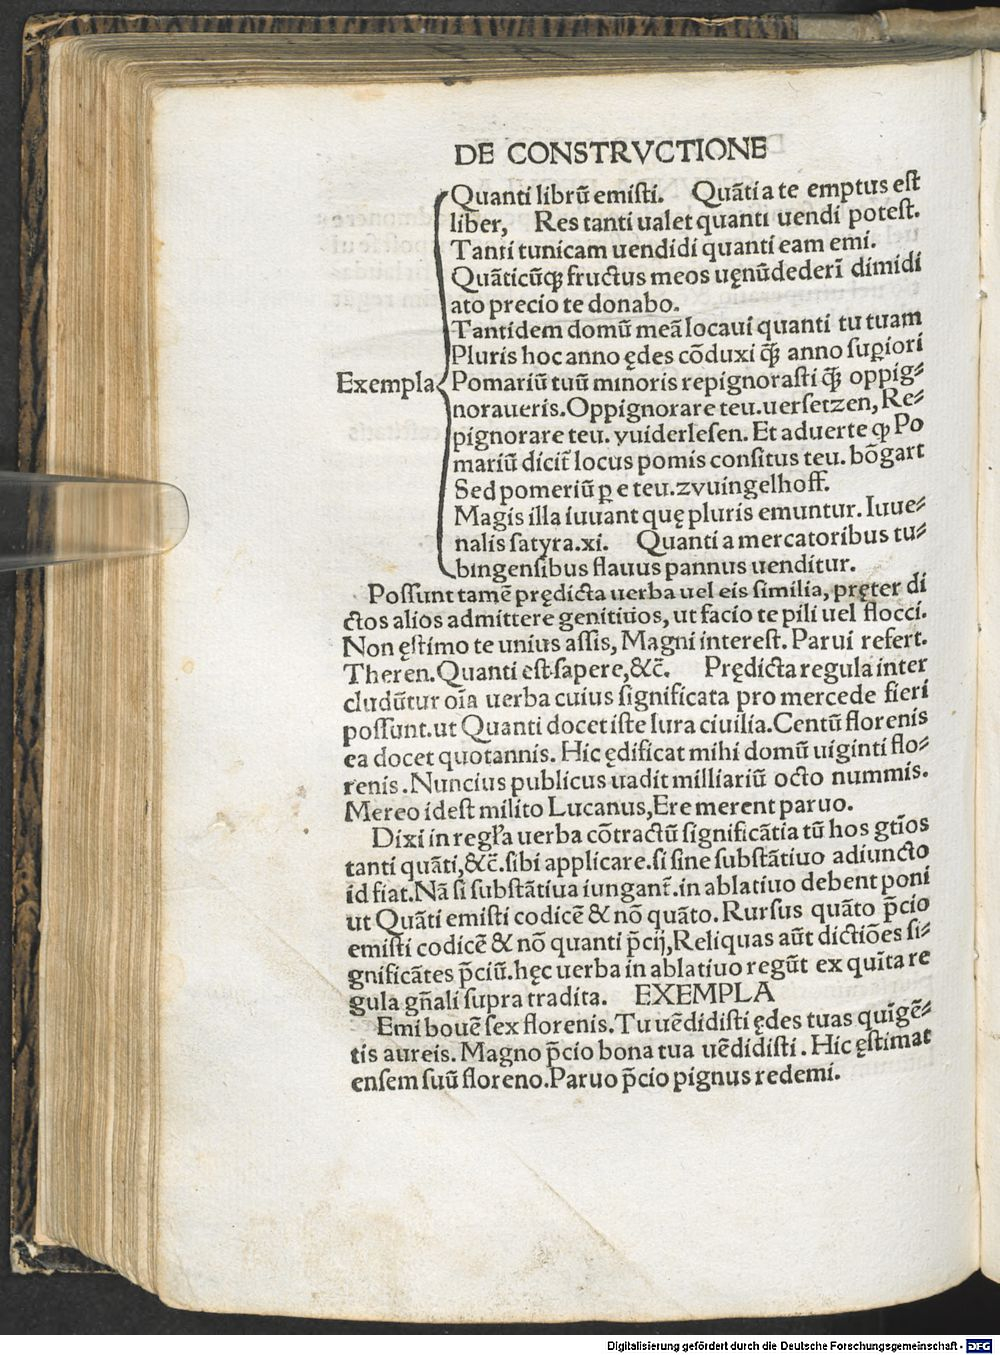 DE CONSTRVCTIONE
Quanti librū emisti. Quāti a te emptus est
liber, Res tanti ualet quanti uendi potest.
Tanti tunicam uendidi quanti eam emi.
Quāticūqꝫ fructus meos uęnūdederī dimidi
ato precio te donabo.
Tantidem domū meā locaui quanti tu tuam
Pluris hoc anno ędes cōduxi q̄ꝫ anno suꝑiori
Exempla Pomariū tuū minoris repignorasti q̄ꝫ oppig⸗
noraueris. Oppignorare teu. uersetzen, Re⸗
pignorare teu. vuiderlesen. Et aduerte ꝙ Po
mariū dicit̄ locus pomis consitus teu. bōgart
Sed pomeriū ꝑ e teu. zvuingelhoff.
Magis illa iuuant quę pluris emuntur. Iuue⸗
nalis satyra .xi. Quanti a mercatoribus tu⸗
bingensibus flauus pannus uenditur.
Possunt tamē prędicta uerba uel eis similia, pręter di
ctos alios admittere genitiuos, ut facio te pili uel flocci.
Non ęstimo te unius assis, Magni interest. Parui refert.
Theren. Quanti est sapere, &c̄. Prędicta regula inter
cludūtur oīa uerba cuius significata pro mercede fieri
possunt. ut Quanti docet iste Iura ciuilia. Centū florenis
ea docet quotannis. Hic ędificat mihi domū uiginti flo⸗
renis. Nuncius publicus uadit milliariū octo nummis.
Mereo idest milito Lucanus, Ere merent paruo.
Dixi in regl̄a uerba cōtractū significātia tū hos gtīos
tanti quāti, &c̄. sibi applicare. si sine substātiuo adiuncto
id fiat. Nā si substātiua iungant̄. in ablatiuo debent poni
ut Quāti emisti codicē & nō quāto. Rursus quāto p̄cio
emisti codicē & nō quanti p̄cij, Reliquas aūt dictiōes si⸗
gnificātes p̄ciū. hęc uerba in ablatiuo regūt ex quīta re
gula gn̄ali supra tradita. EXEMPLA
Emi bouē sex florenis. Tu uēdidisti ędes tuas quīgē⸗
tis aureis. Magno p̄cio bona tua uēdidisti. Hic ęstimat
ensem suū floreno. Paruo p̄cio pignus redemi.
Digitalisierung gefördert durch die Deutsche Forschungsgemeinschaft - DFG